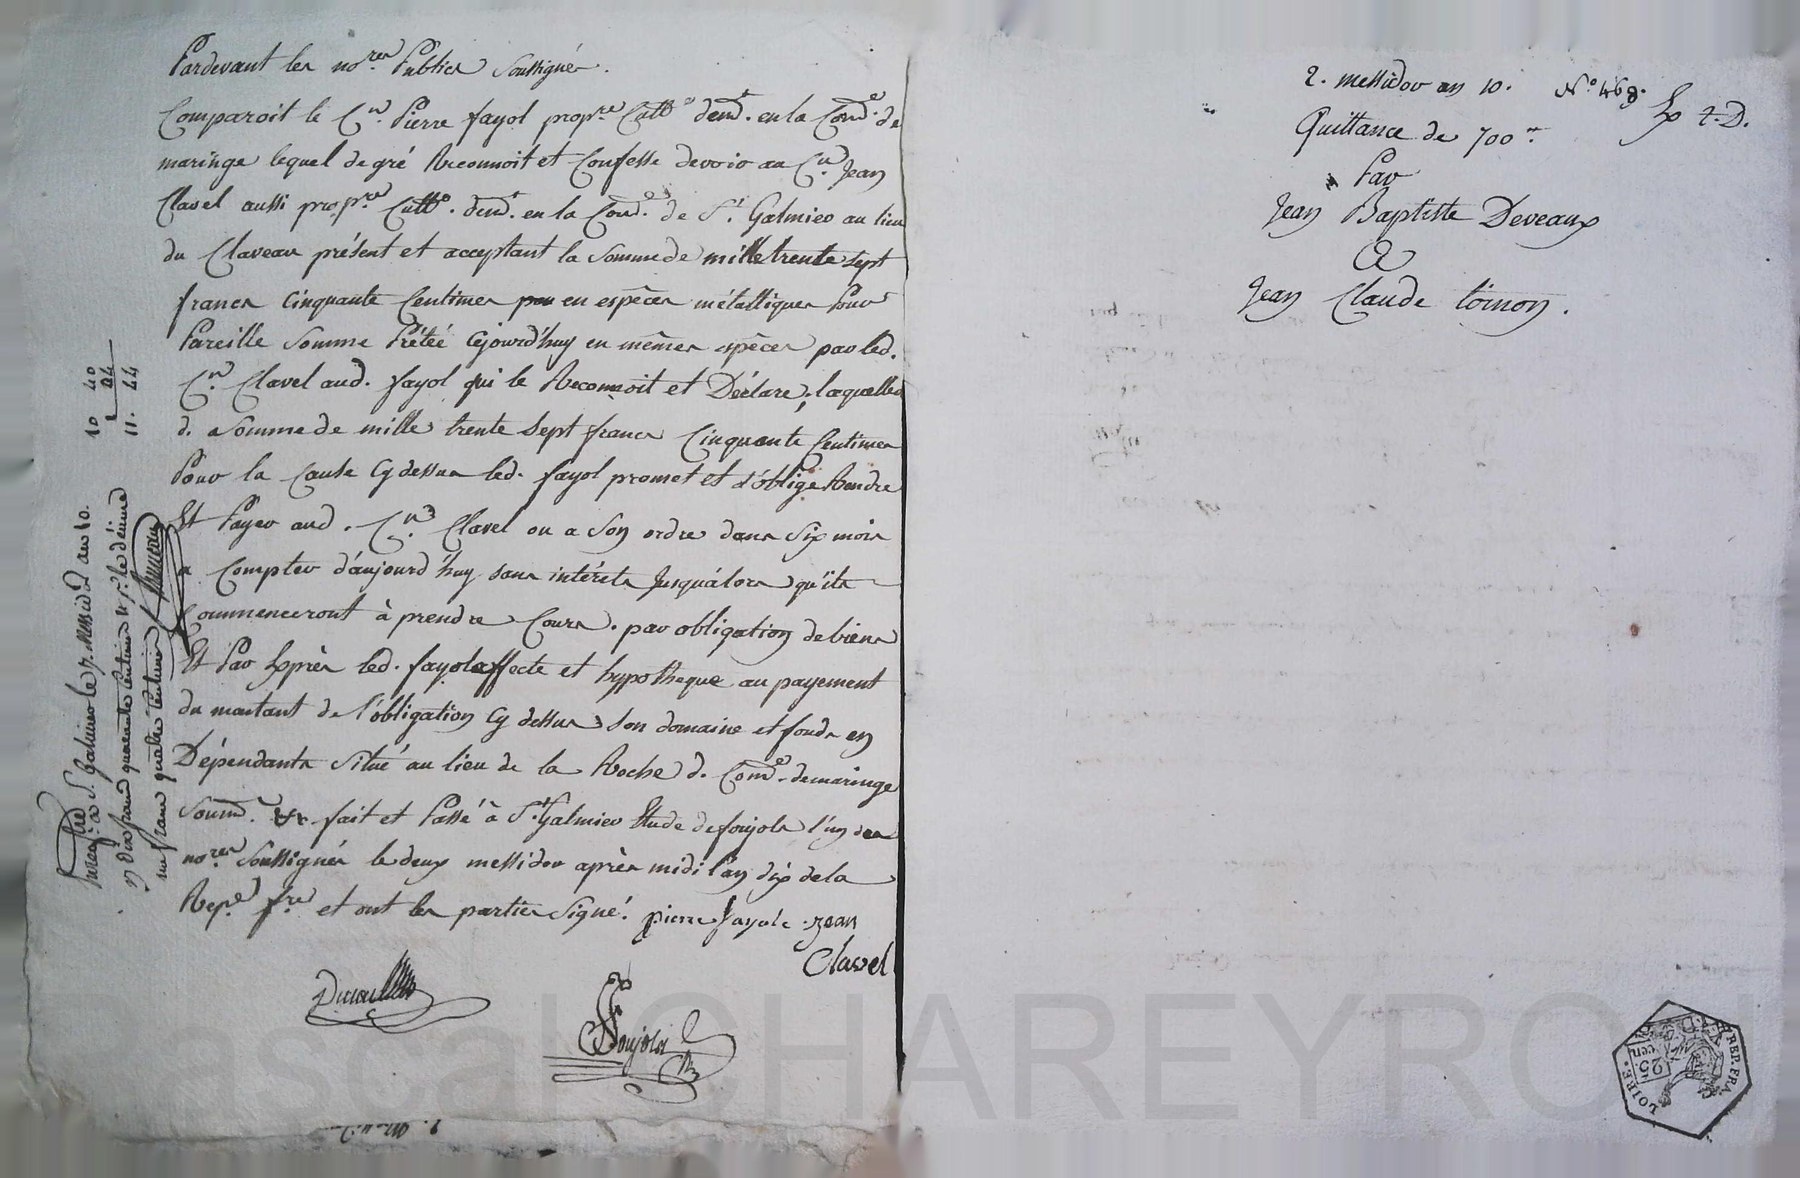 Pardevant les no.res Publics Soussignés.
Comparoit le C.n Pierre fayol prop.re Cult.r dem.t en la Com.e de
maringe lequel de gré Reconnoit et Confesse devoir au C.n Jean
Clavel aussi prop.re Cult.r dem.t en la Com.e de S.t Galmier au lieu
du Claveau présent et acceptant la Somme de mille trente sept
francs Cinquante Centimes en espèces métalliques Pour
Pareille Somme Prêtée Cejourd'huy en mêmes espèces par led.
C.n Clavel aud. fayol qui le Reconnoit et Déclare, laquelle
d. Somme de mille trente Sept francs Cinquante Centimes
Pour la Cause Cy dessus led. fayol promet et s'oblige Rendre
Et Payer aud. C.n Clavel ou a Son ordre dans Six mois
a Compter d'aujourd'huy sans intérêts Jusqu'alors qu'ils
Commenceront à prendre Cours. par obligation de biens
Et Par Exprès led. fayol affecte et hypotheque au payement
du montant de l'obligation Cy dessus Son domaine et fonds en
Dépendants Situé au lieu de la Roche d. Com.e de maringe
Soum.n &c fait et Passé à S.t Galmier Etude de foujols l'un des
no.res Soussignés le deux messidor après midi l'an dix de la
Rep.e f.re et ont les parties Signé. pierre fayole jean
Clavel
Foujols
Enreg.é à S.t Galmier le 7. Messidor an 10.
dix francs quarante centimes le décime
un franc quatre centimes
10 40
1 04
11. 44
2. messidor an 10. N.o 468.
Exp t.D.
Quittance de 700.
Par
Jean Baptiste Deveaux
A
Jean Claude toinon.
REP. FRA.
25
cen
LOIRE